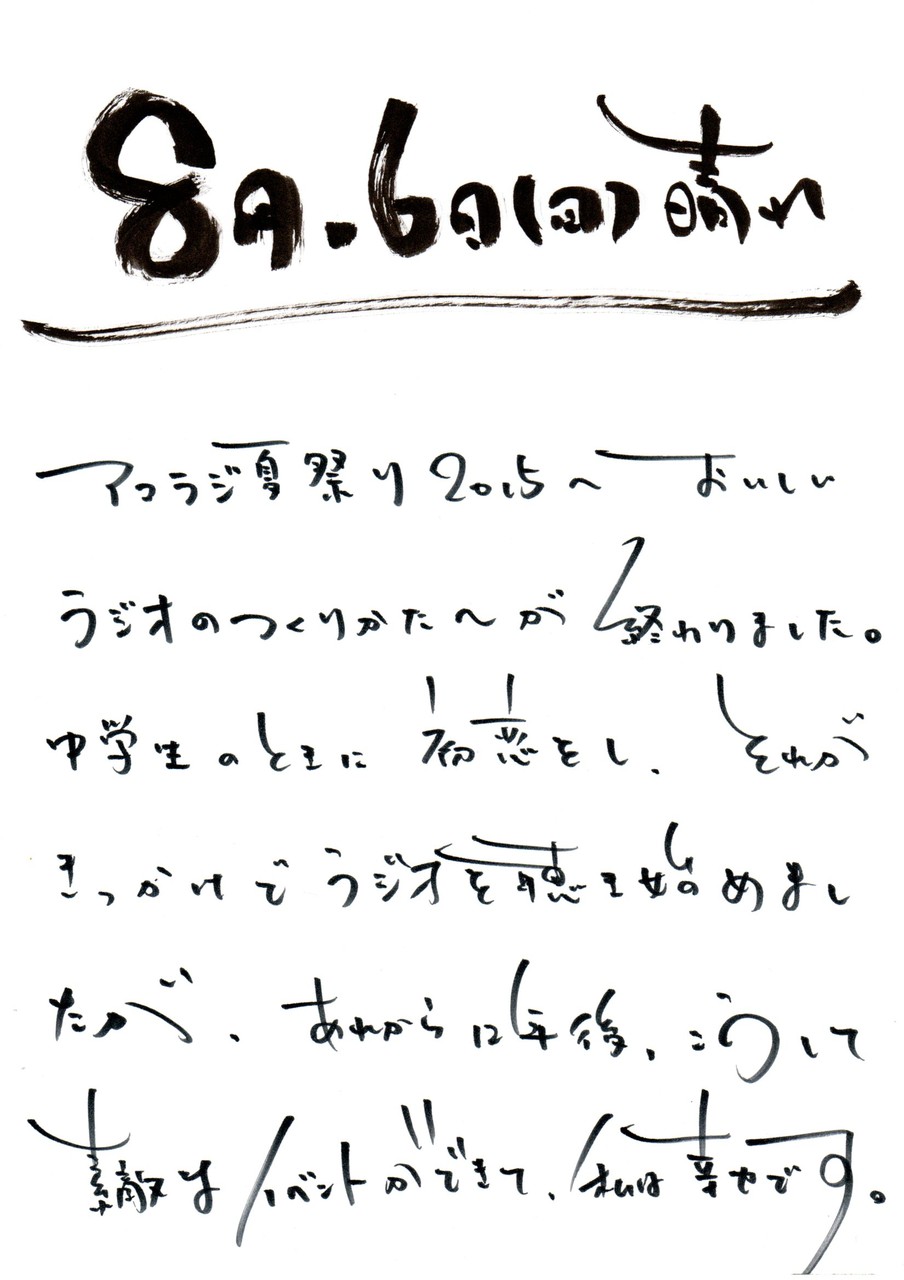 8月16日(日)晴れ
アコラジ夏祭り2015〜おいしい
ラジオのつくりかた〜が終わりました。
中学生のときに初恋をし、それが
きっかけでラジオを聴き始めまし
たが、あれから12年後、こうして
素敵なイベントができて、私は幸せです。